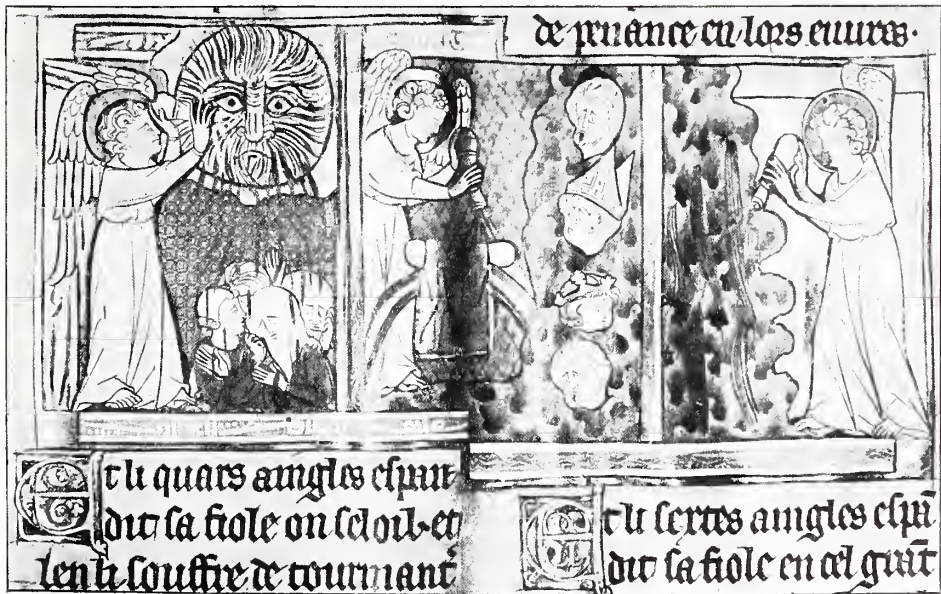 de penance en lors euures.
Et li quars aingles espan
dit sa fiole on seloil et
len li souffre de tourmant
Et li sextes aingles espā
dit sa fiole en cel grāt